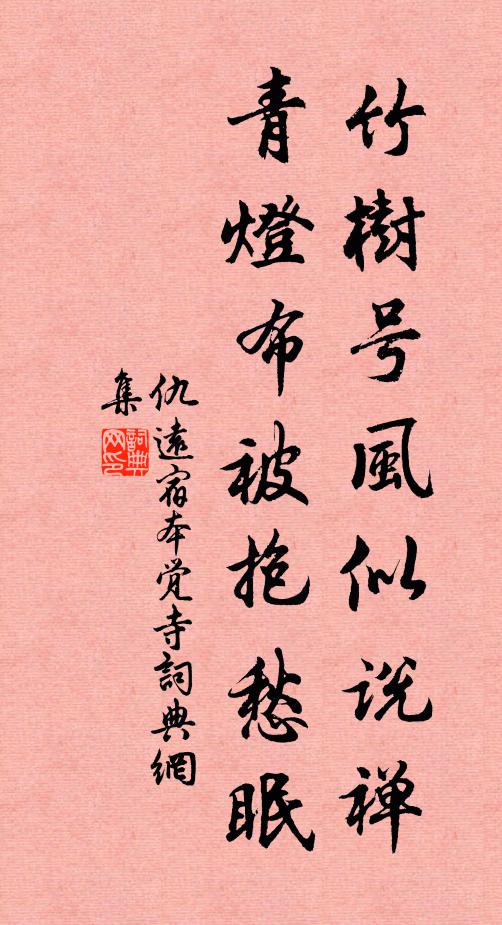 竹樹号風似说禅
青燈布被抱愁眠
仇遠宿本觉寺詞典網
集
詞典网印